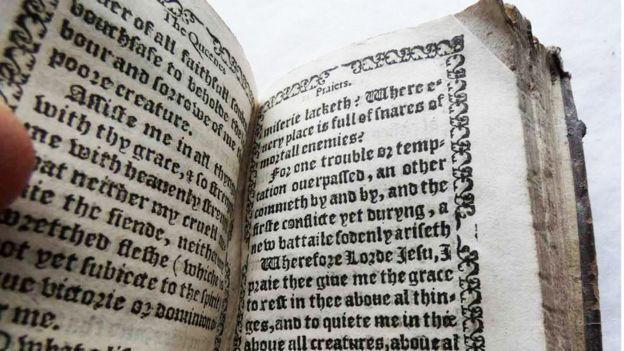 The Queenes
of all faithfull
vouchsafe to beholde the
bour and sorrowe of me
poore creature.
Assiste me in all
with thy grace, & so
me with heavenly
that neither my cruell
the fiende, neither
wretched fleshe (whiche
not yet subiecte to the spirit
victorie or dominion
me.
Praiers.
miserie lacketh? Where e-
uery place is full of snares of
mortall enemies?
For one trouble or temp-
tation ouerpassed, an other
commeth by and by, and the
firste conflicte yet duryng, a
new battaile sodenly ariseth
Wherefore Lorde Jesu, I
praie thee giue me the grace
to rest in thee aboue al thin-
ges, and to quiete me in thee
aboue all creatures, aboue al